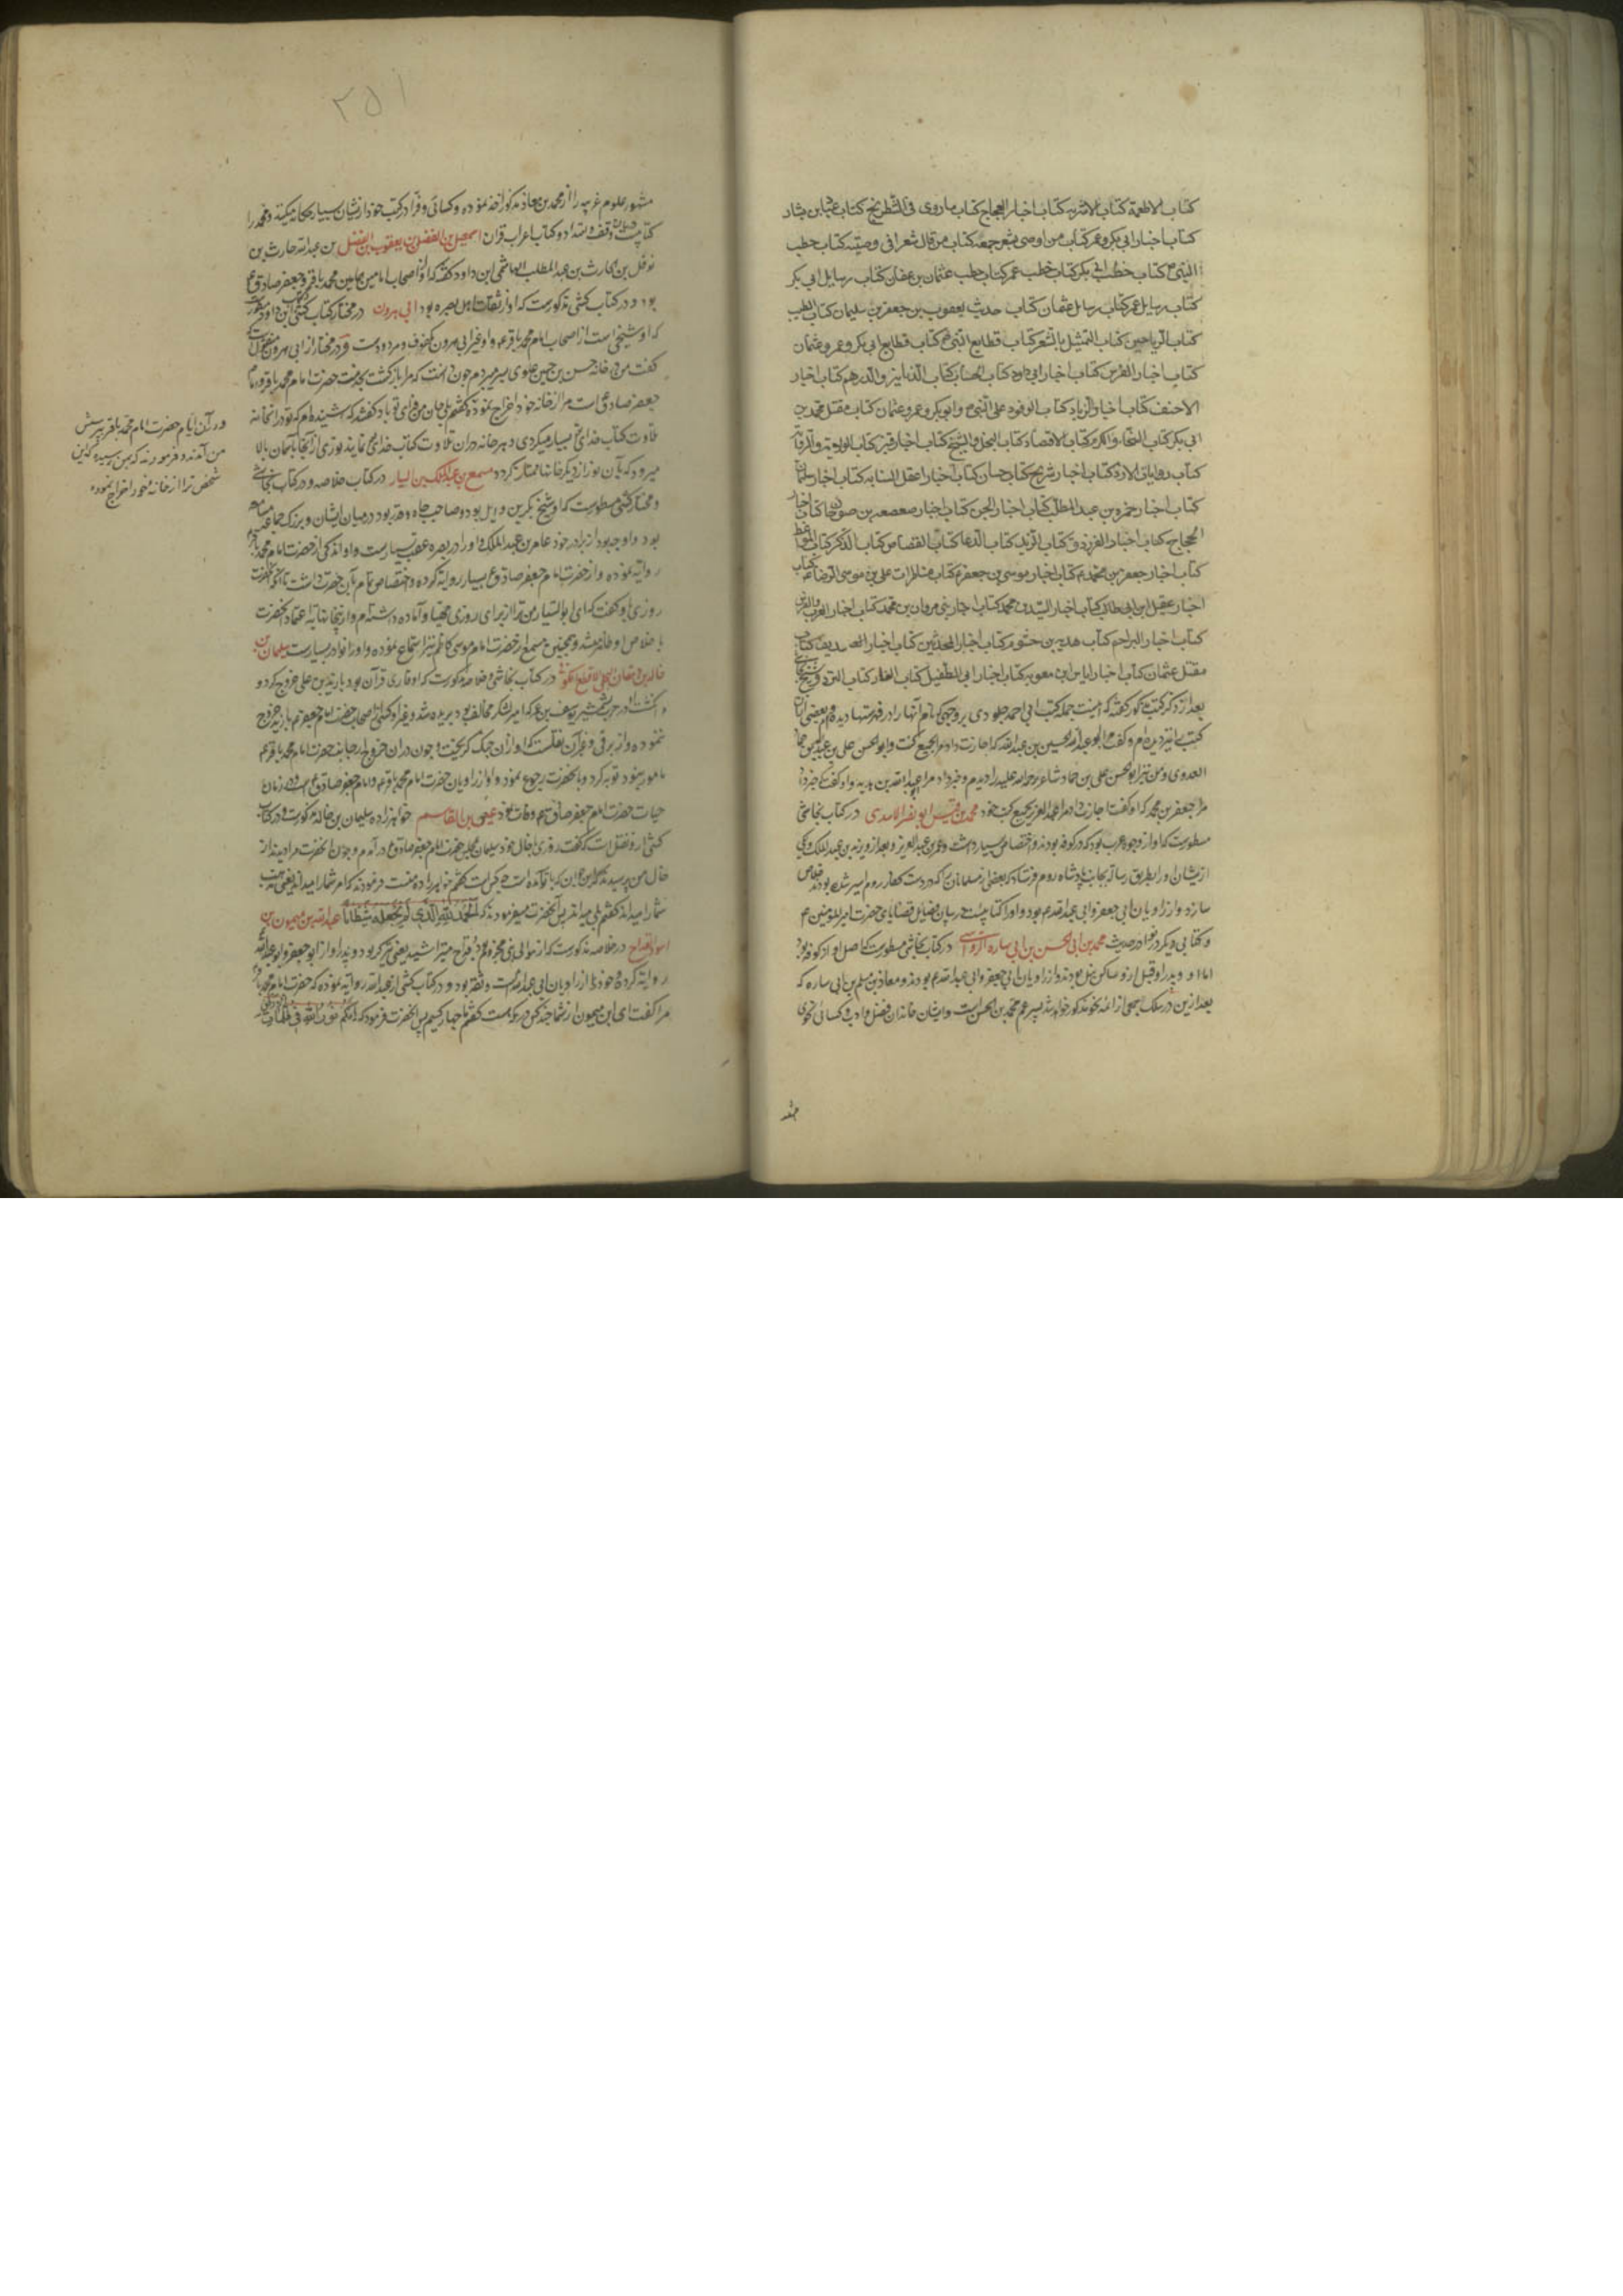 کتاب الاطعمة کتاب الاشربه کتاب اخبار العجاج کتاب ماروی فی الشطرنج کتاب
کتاب اخبار ابی بکر و عمر کتاب من اوصی بشعر جمعه کتاب من قال شعرا فی وصیته کتاب خطب
النبی ع کتاب خطب ابی بکر کتاب خطب عمر کتاب خطب عثمان بن عفان کتاب رسایل ابی بکر
کتاب رسایل عمر کتاب رسایل عثمان کتاب حدیث یعقوب بن جعفر بن سلیمان کتاب الطیب
کتاب الریاحین کتاب التمثیل بالشعر کتاب قطایع النبی ع کتاب قطایع ابی بکر و عمر و عثمان
کتاب اخبار الفرس کتاب اخبار ابی داود کتاب کتاب الدنانیر و الدرهم کتاب اخبار
الاحنف کتاب اخبار زیاد کتاب الوفود علی النبی ع و ابو بکر و عمر و عثمان کتاب مقتل محمد بن
ابی بکر کتاب السخاء و الکرم کتاب الاقتضاء کتاب البخل و الشح کتاب اخبار قنبر کتاب الالویه و الرایات
کتاب رایات الازد کتاب اخبار شریح کتاب حسان کتاب اخبار دغفل النسابه کتاب اخبار سلیمان
کتاب اخبار حمزه بن عبد المطلب کتاب اخبار الجن کتاب اخبار صعصعه بن صوحان کتاب اخبار
الحجاج کتاب اخبار الفرزدق کتاب الزهد کتاب الدعا کتاب القصاص کتاب الذکر کتاب المواعظ
کتاب اخبار جعفر بن محمد ع کتاب اخبار موسی بن جعفر ع کتاب مناظرات علی بن موسی الرضا ع کتاب
اخبار عقیل ابن ابی طالب کتاب اخبار السید بن محمد کتاب اخبار بنی مروان بن محمد کتاب اخبار العرب و الفرس
کتاب اخبار البراجم کتاب هدبه بن خشرم کتاب اخبار المحدثین کتاب اخبار کتاب
مقتل عثمان کتاب اخبار ایاس ابن معویه کتاب اخبار ابی الطفیل کتاب الغار کتاب القرود
بعد از ذکر کتب مذکور گفته که اینست جمله کتب ابی احمد جلودی بر وجهی که نام آنها را در فهرستها دیده‌ام و بعضی از آن
کتب را نیز دیده‌ام و گفت مرا ابو عبدالله الحسین بن عبیدالله که اجازت داد مرا بجمیع کتب و ابو الحسن علی بن حماد
العدوی و من نیز ابو الحسن علی بن حماد شاعر رحمه الله علیه را دیدم و خبر داد مرا عبدالله بن هدیه و او گفت که خبر داد
مرا جعفر بن محمد که او گفت اجازت داد مرا عبدالعزیز بجمیع کتب خود محمد بن قیس ابو نصر الاسدی در کتاب نجاشی
مسطورست که او از وجوه عرب بود که در کوفه بودند و اختصاص بسیار داشت بعمر بن عبدالعزیز و بعد از و یزید بن عبدالملک و یکی
ازیشان او را بطریق رسالة بجانب پادشاه روم فرستاد که بعضی از مسلمانان را که در دست کفار روم اسیر شده بودند خلاص
سازد و از راویان ابی جعفر و ابی عبدالله ع بود و او را کتابیست در بیان فضایل قضایای حضرت امیر المؤمنین ع
و کتابی دیگر در نوادر حدیث محمد بن ابی الحسن بن ابی ساره الرواسی در کتاب نجاشی مسطورست که اصل او از کوفه بود
اما او و پدر او قبل ازو ساکن نیل بودند و از راویان ابی جعفر و ابی عبدالله ع بودند و معاذ بن مسلم بن ابی ساره که
بعد ازین در سلک اصحاب از ائمه نحو مذکور خواهد شد پسر عم محمد بن الحسن است و ایشان خاندان فضل و ادب و کسائی نحوی
مشهور علوم غریبه را از محمد بن معاذ مذکور اخذ نموده و کسائی و فرا در کتب خود ازیشان بسیار حکایت میکنند و محمد را
کتابیست در وقف و ابتدا و کتاب اعراب قرآن اسمعیل بن الفضل بن یعقوب بن الفضل بن عبدالله حارث بن
نوفل بن الحارث بن عبد المطلب الهاشمی ابن داود گفته که او از اصحاب امامین محمد باقر و جعفر صادق ع
بود و در کتاب کشی مذکورست که او از ثقات اهل بصره بود ابی هرون در مختار کتاب کشی و کتاب ابن داود مسطور
که او شیخی است از اصحاب امام محمد باقر ع و او غیر ابی هرون مکفوف و مردودست و در مختار از ابی هرون منقولست که
گفت من در خانه حسن بن حسین علوی بسر میبردم چون دانست که مرا بازگشت بخدمت حضرت امام محمد باقر و امام
جعفر صادق ع است مرا از خانه خود اخراج نمود
تلاوت کتاب خدای بسیار میکردی و هر خانه که در آن تلاوت کتاب خدای نمایند نوری از آنجا بآسمان بالا
میرود که بآن نور از دیگر خانها ممتاز گردد مسمع بن عبدالملک بن السیار در کتاب خلاصه و در کتاب نجاشی
و مختار کشی مسطورست که او شیخ بکر بن وایل بود و صاحب جاه و قدر بود در میان ایشان و بزرگ
بود و او وجه بود از برادر خود عامر بن عبدالملک و او را در بصره عقب بسیارست و او اندکی از حضرت امام محمد باقر
روایة نموده و از حضرت امام جعفر صادق ع بسیار روایة کرده و اختصاص تمام بآن حضرت داشت تا آنکه آنحضرت
روزی باو گفت که ای ابو السیار من ترا از برای روزی مهیا و آماده داشته‌ام و ازینجا نهایة اعتماد آنحضرت
باخلاص او ظاهر میشود و همچنین مسمع از حضرت امام موسی کاظم نیز استماع نموده و او را نوادر بسیارست سلیمان بن
خالد بن دهقان البجلی الاقطع الکوفی در کتاب نجاشی و خلاصه مذکورست که او قاری قرآن بود با زید بن علی خروج کرد و
انگشت او در حرب بشمشیر یوسف بن عمر که امیر لشکر مخالف بود بریده شد و غیر او کسی از اصحاب حضرت امام جعفر ع با زید خروج
ننموده و از برقی و غیر آن نقلست که او از آن جنگ گریخت و چون در آن خروج از جانب حضرت امام محمد باقر ع
مامور نبود توبه کرد و بآنحضرت رجوع نمود و او از راویان حضرت امام محمد باقر ع و امام جعفر صادق ع است و در زمان
حیات حضرت امام جعفر صادق ع وفات نمود عیص بن القاسم خواهرزاده سلیمان بن خالد مذکورست و در کتاب
کشی ازو نقل است که گفت روزی با خال خود سلیمان بخدمت حضرت امام جعفر صادق ع در آمدم و چون آنحضرت مرا دیدند از
خال من پرسیدند که این جوان که با تو آمده است چه کس است گفتم خواهرزاده منست فرمودند که امر شما را میداند یعنی مذهب
شما را میداند گفتم بلی میداند پس آنحضرت میفرمودند که الحمد لله الذی لم یجعله شیطانا عبدالله بن میمون بن
اسود القداح در خلاصه مذکورست که از موالی بنی مخزوم بود و قداح میتراشید یعنی تیرگر بود و پدر او از ابو جعفر و ابو عبدالله
روایة کرده و خود از راویان ابی عبدالله ع است و ثقه بود و در کتاب کشی از عبدالله روایة نموده که حضرت امام محمد باقر
مرا گفت ای ابن میمون از شما چند کس در مکه هست گفتم ما چهار کسیم پس آنحضرت فرمود که انکم نور الله فی ظلمات
و در آن ایام حضرت امام محمد باقر بپرسش
من آمدند و فرمودند که بمن رسیده که این
شخص ترا از خانه خود اخراج نموده
مشهور
۲۵۱